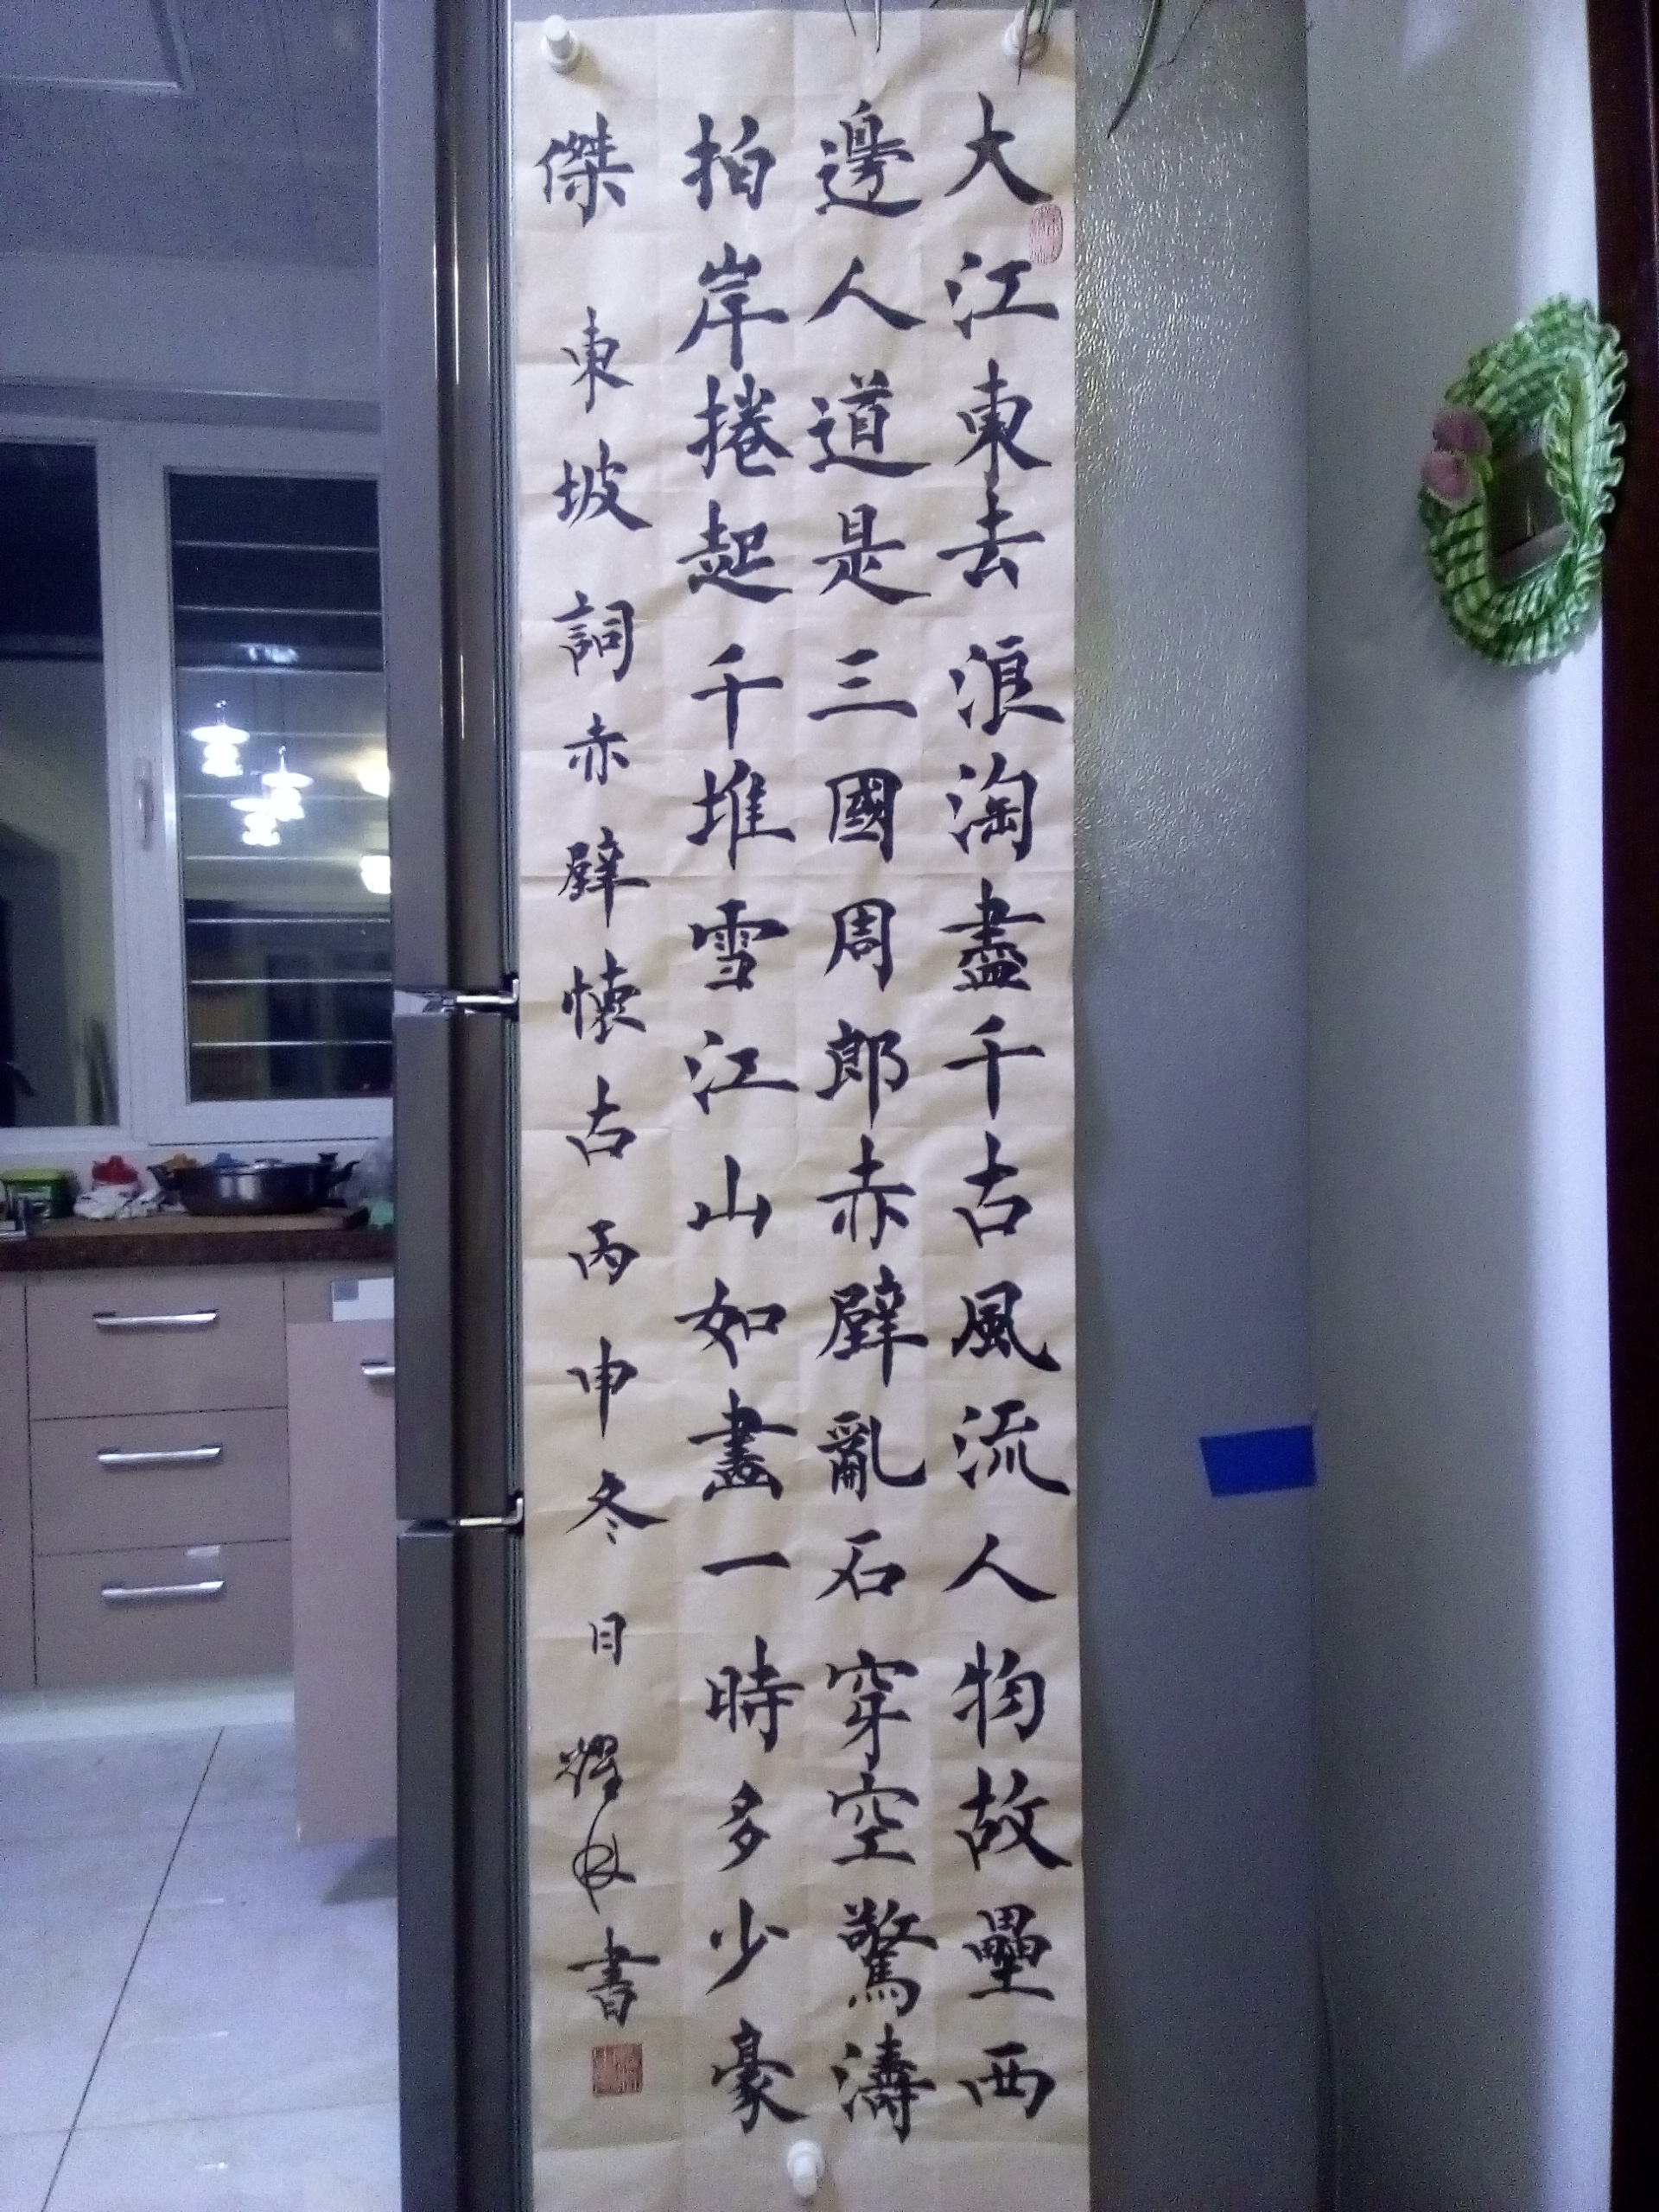 大江東去浪淘盡千古風流人物故壘西
邊人道是三國周郎赤壁亂石穿空驚濤
拍岸捲起千堆雪江山如畫一時多少豪
傑 東坡詞赤壁懷古丙申冬日耀書